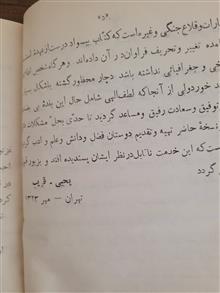 «و»
بارات وقلاع جنگی وغیره است که کتاب بیسواد درست از عهده
آمده تغییر و تحریف فراوان در آن داده‌اند وهر گاه شخص
یخی و جغرافیائی نداشته باشد دچار محظور گشته
خوردولی از آنجا که لطف الهی شامل حال این بنده
توفیق وسعادت رفیق و مساعد گردید تا حدی بحل مشکلات
نسخهٔ حاضر تهیه وتقدیم دوستان فضل ودانش وعلم و ادب
است که این خدمت ناقابل در نظر ایشان پسندیده افتد و بزیور
گردد
یحیی - قریب
تهران - مهر ۱۳۲۳